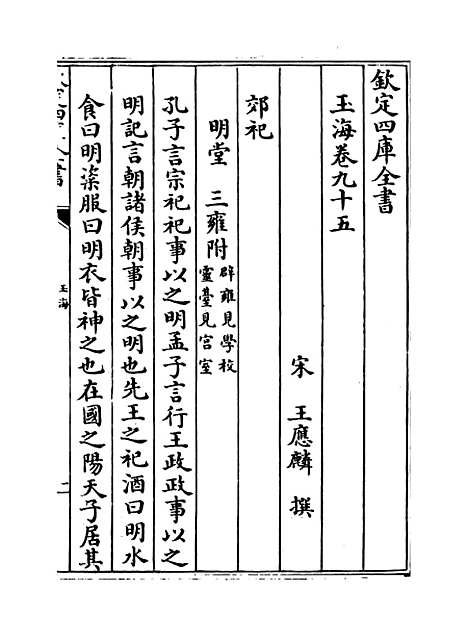 欽定四庫全書
玉海卷九十五
宋 王應麟 撰
郊祀
明堂 三雍附 辟雍見學校
靈臺見宮室
孔子言宗祀祀事以之明孟子言行王政政事以之
明記言朝諸侯朝事以之明也先王之祀酒曰明水
食曰明粢服曰明衣皆神之也在國之陽天子居其
玉海